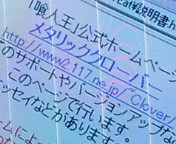 「喰人王」公式ホームページ
メタリッククローバー
http://www2.111.ne.jp/~Clover/
のサポートやバージョンアップな
このページで行います。
ッセイなどがあります。